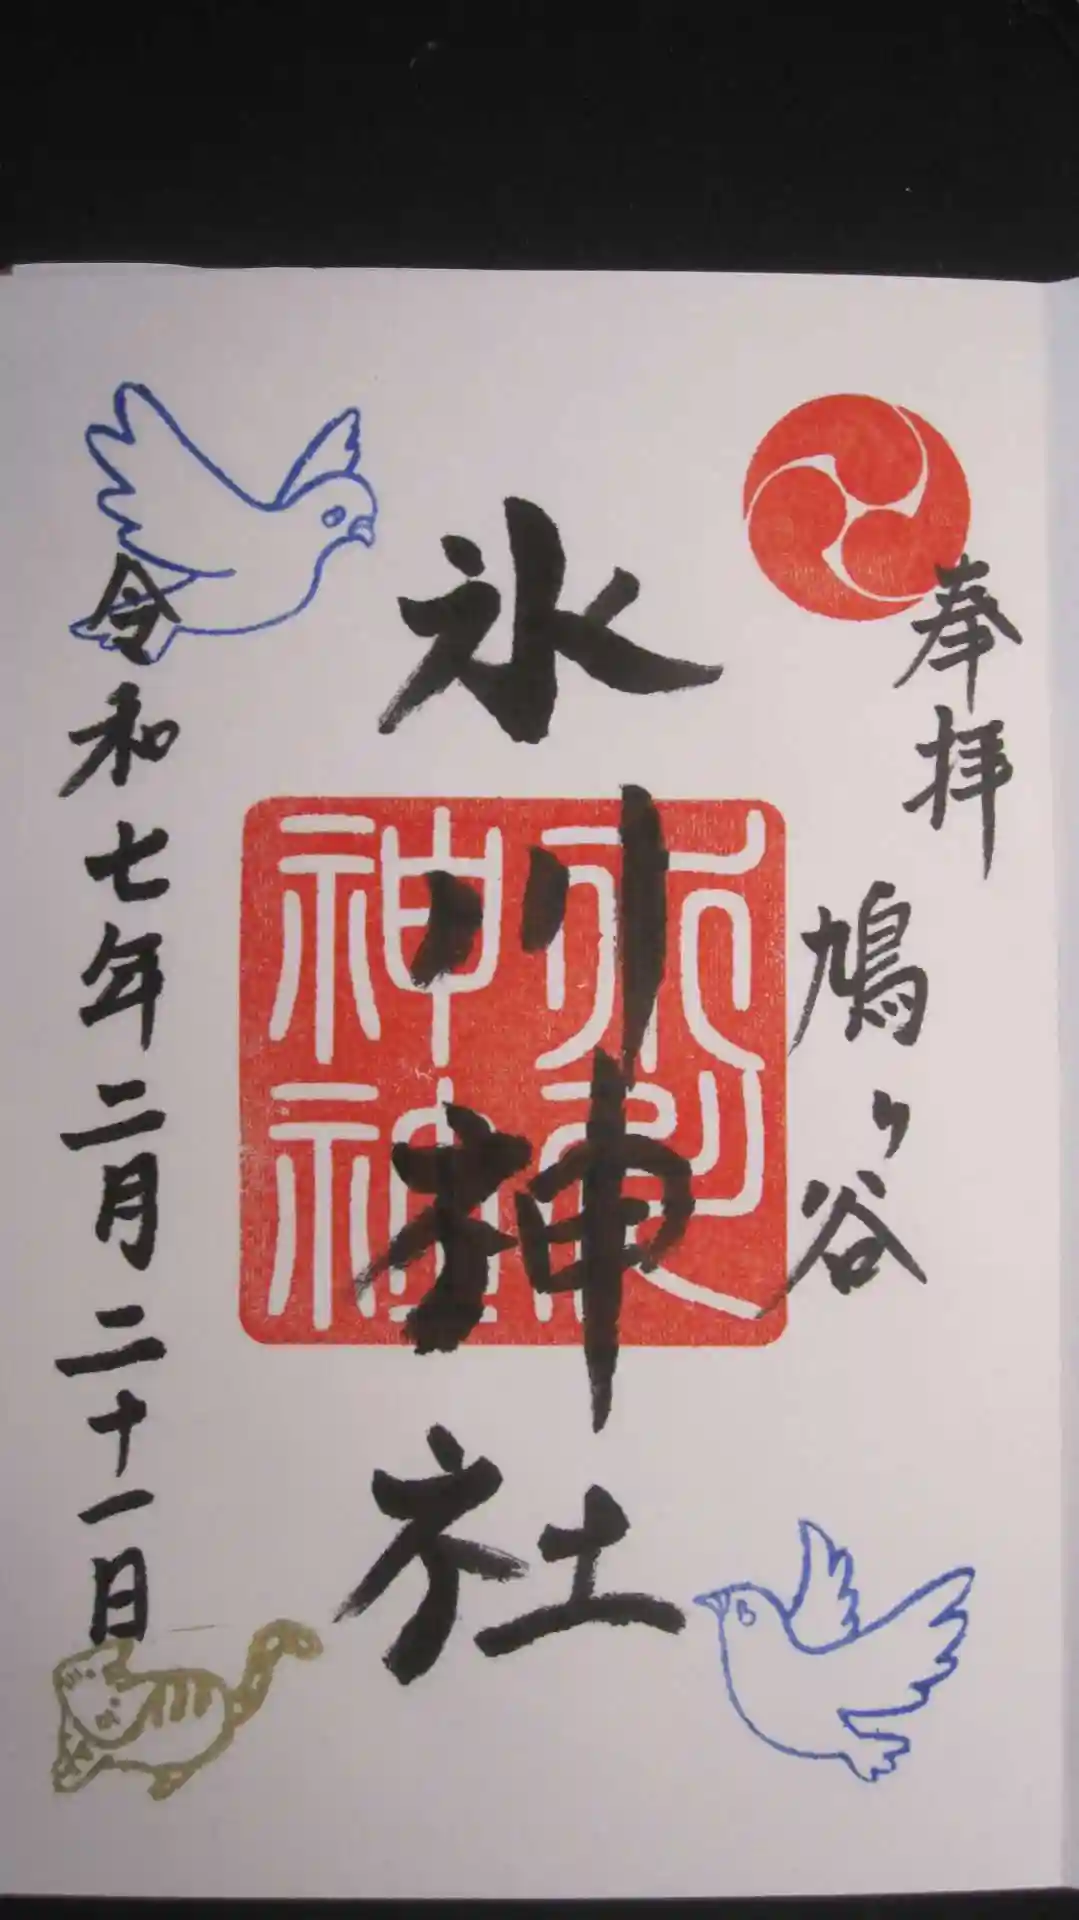 奉拝
鳩ヶ谷
氷川神社
令和七年二月二十一日